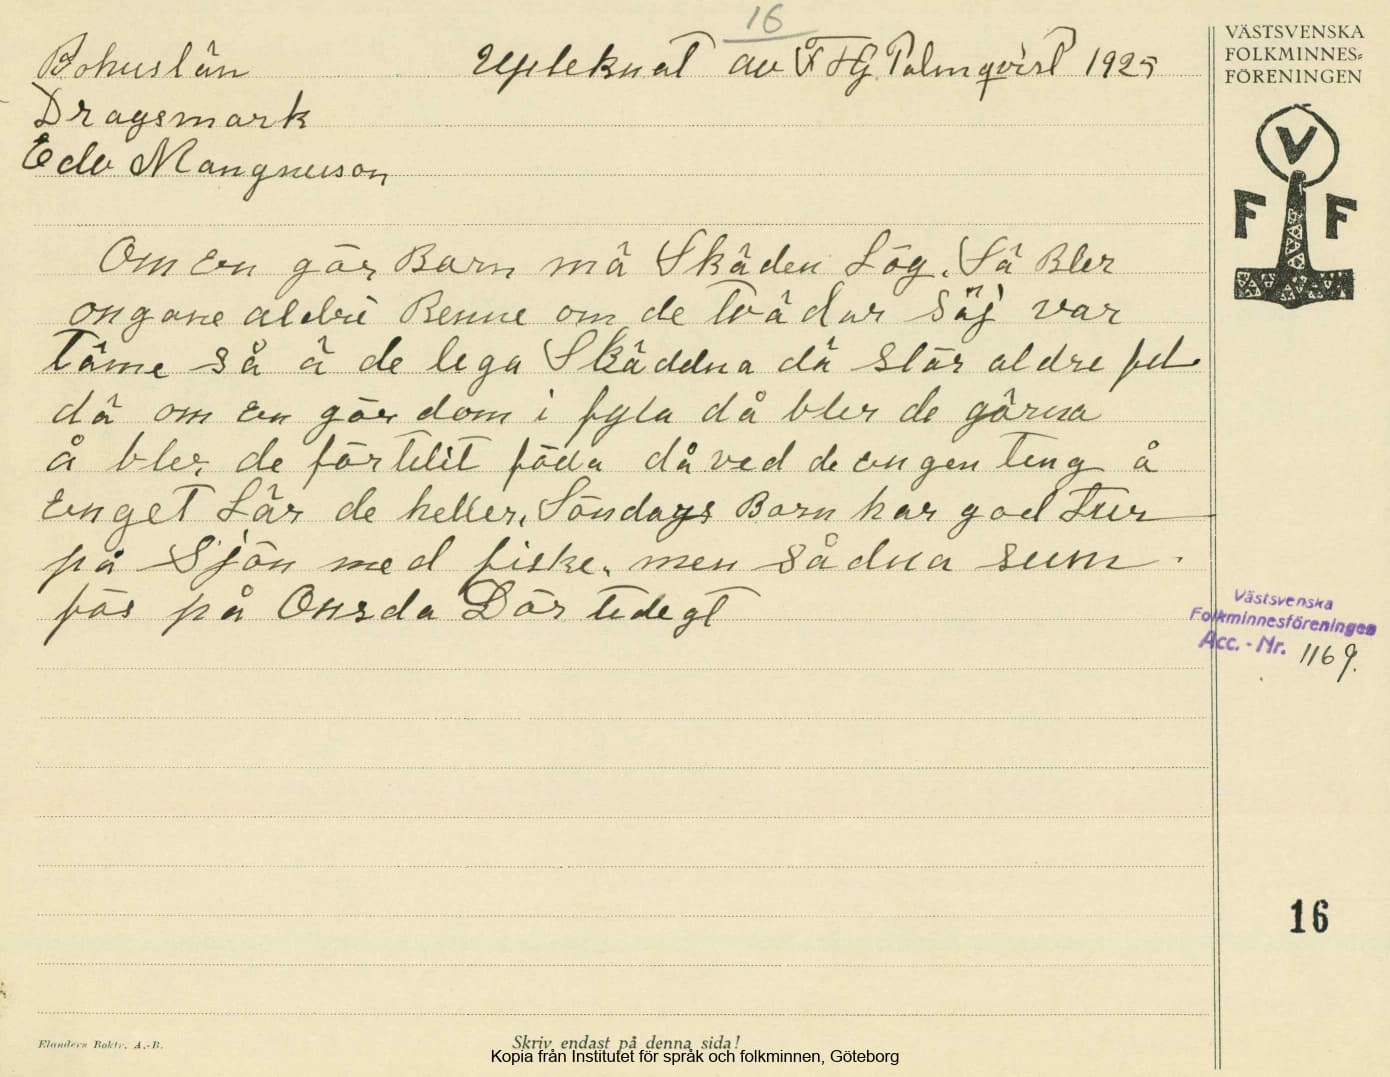 16
Bohuslän
Upteknat av F HG Palmqvist 1925
Dragsmark
Edv Mangnuson
Om en gör Barn må Skåden Lög. Så Bler
ongane aldri Benne om de tvådar säj var
Tåme så å de lega Skåddna då slår aldre fel
då om en gör dom i fyla då bler de gårna
å bler de för telit föda då ved de engen teng å
Enget Lår de heller, Söndags Barn har god Tur
på Sjön med fiske. men sådna sum
fös på Onsda Dör tidegt
VÄSTSVENSKA
FOLKMINNES=
FÖRENINGEN
V
F F
Västsvenska
Folkminnesföreningen
Acc. - Nr. 1169.
16
Elanders Boktr. A.-B.
Skriv endast på denna sida!
Kopia från Institutet för språk och folkminnen, Göteborg